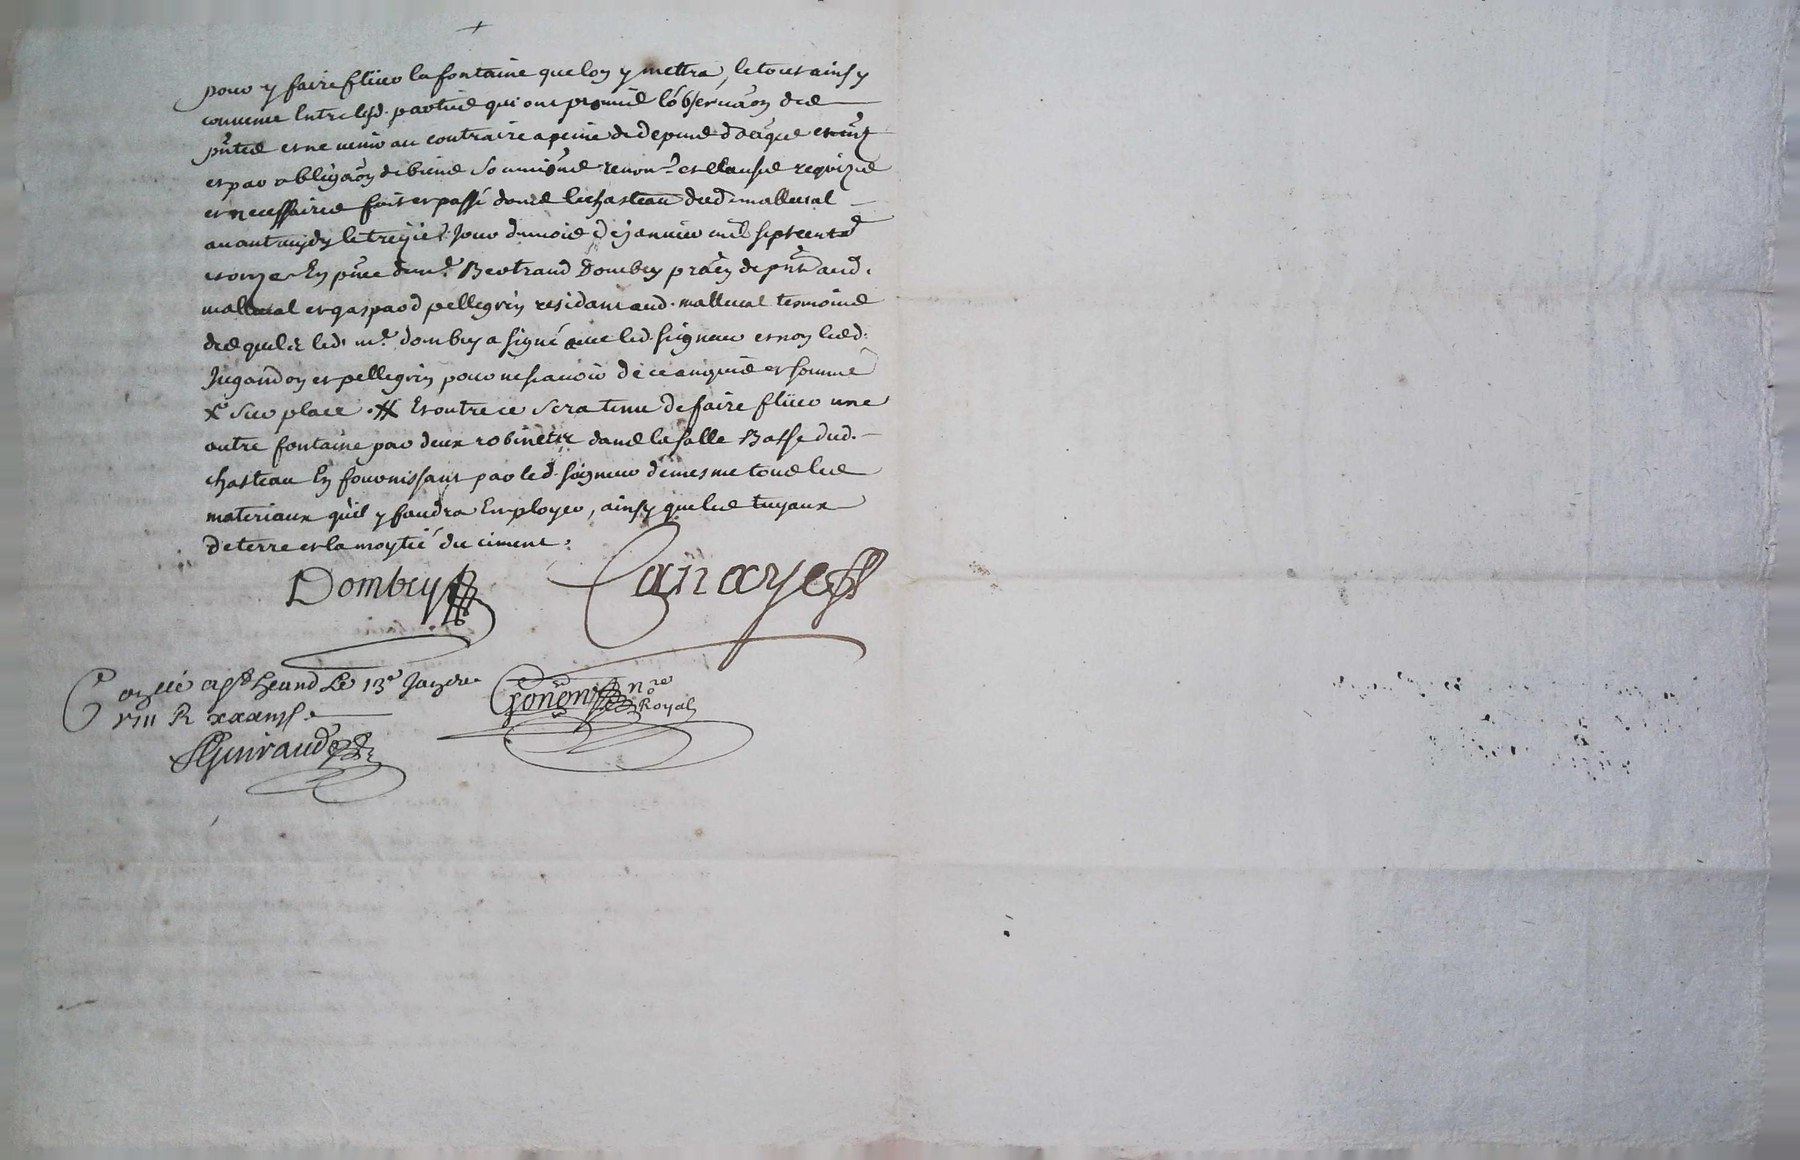 pour y faire flüer la fontaine que lon y mettra, le tout ainsy
convenu Entre lesd. parties qui ont promis lobservaon des
pntes et ne venir au contraire a peine de depens
et par obligaon de biens soumions renonon et clauses requizes
et necessaires fait et passé dans le chasteau dud. malleval
avant midy le trezie. Jour du mois de janvier mil sept cents
et onze En pnce de mr. Bertrand Dombey praen de pnt aud.
malleval et gaspard pellegrin residant aud. malleval tesmoins
desquels led. mr. dombey a signé avec led. seigneur et non lesd.
Jugandon et pellegrin pour ne scavoir de ce enquis et sommé
sur place. Et outre ce sera tenu de faire flüer une
autre fontaine par deux robinets dans la salle Basse dud.
chasteau En fournissant par led. seigneur de mesme tous les
materiaux qu'il y faudra Employer, ainsy que les tuyaux
de terre et la moytié du ciment.
Dombey Canaye
Le 13e Janver
Gonon nre Royal
Guiraud